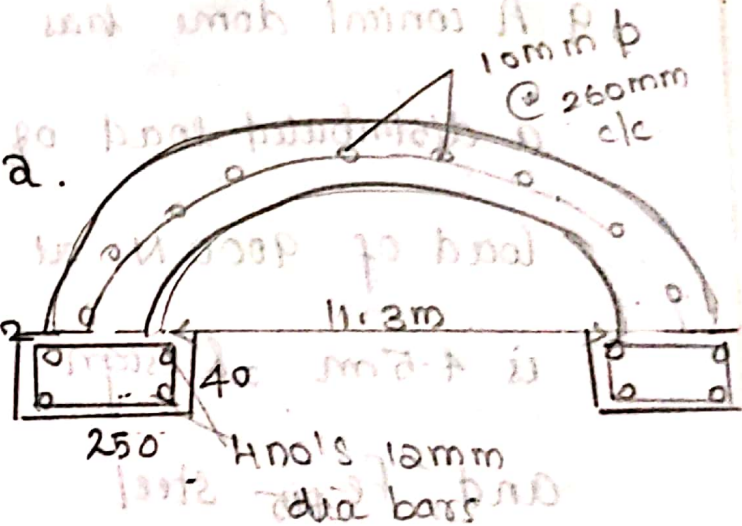 10mm φ
@ 260mm
c/c
2.
11.3m
40
250
4no's 12mm
dia bars